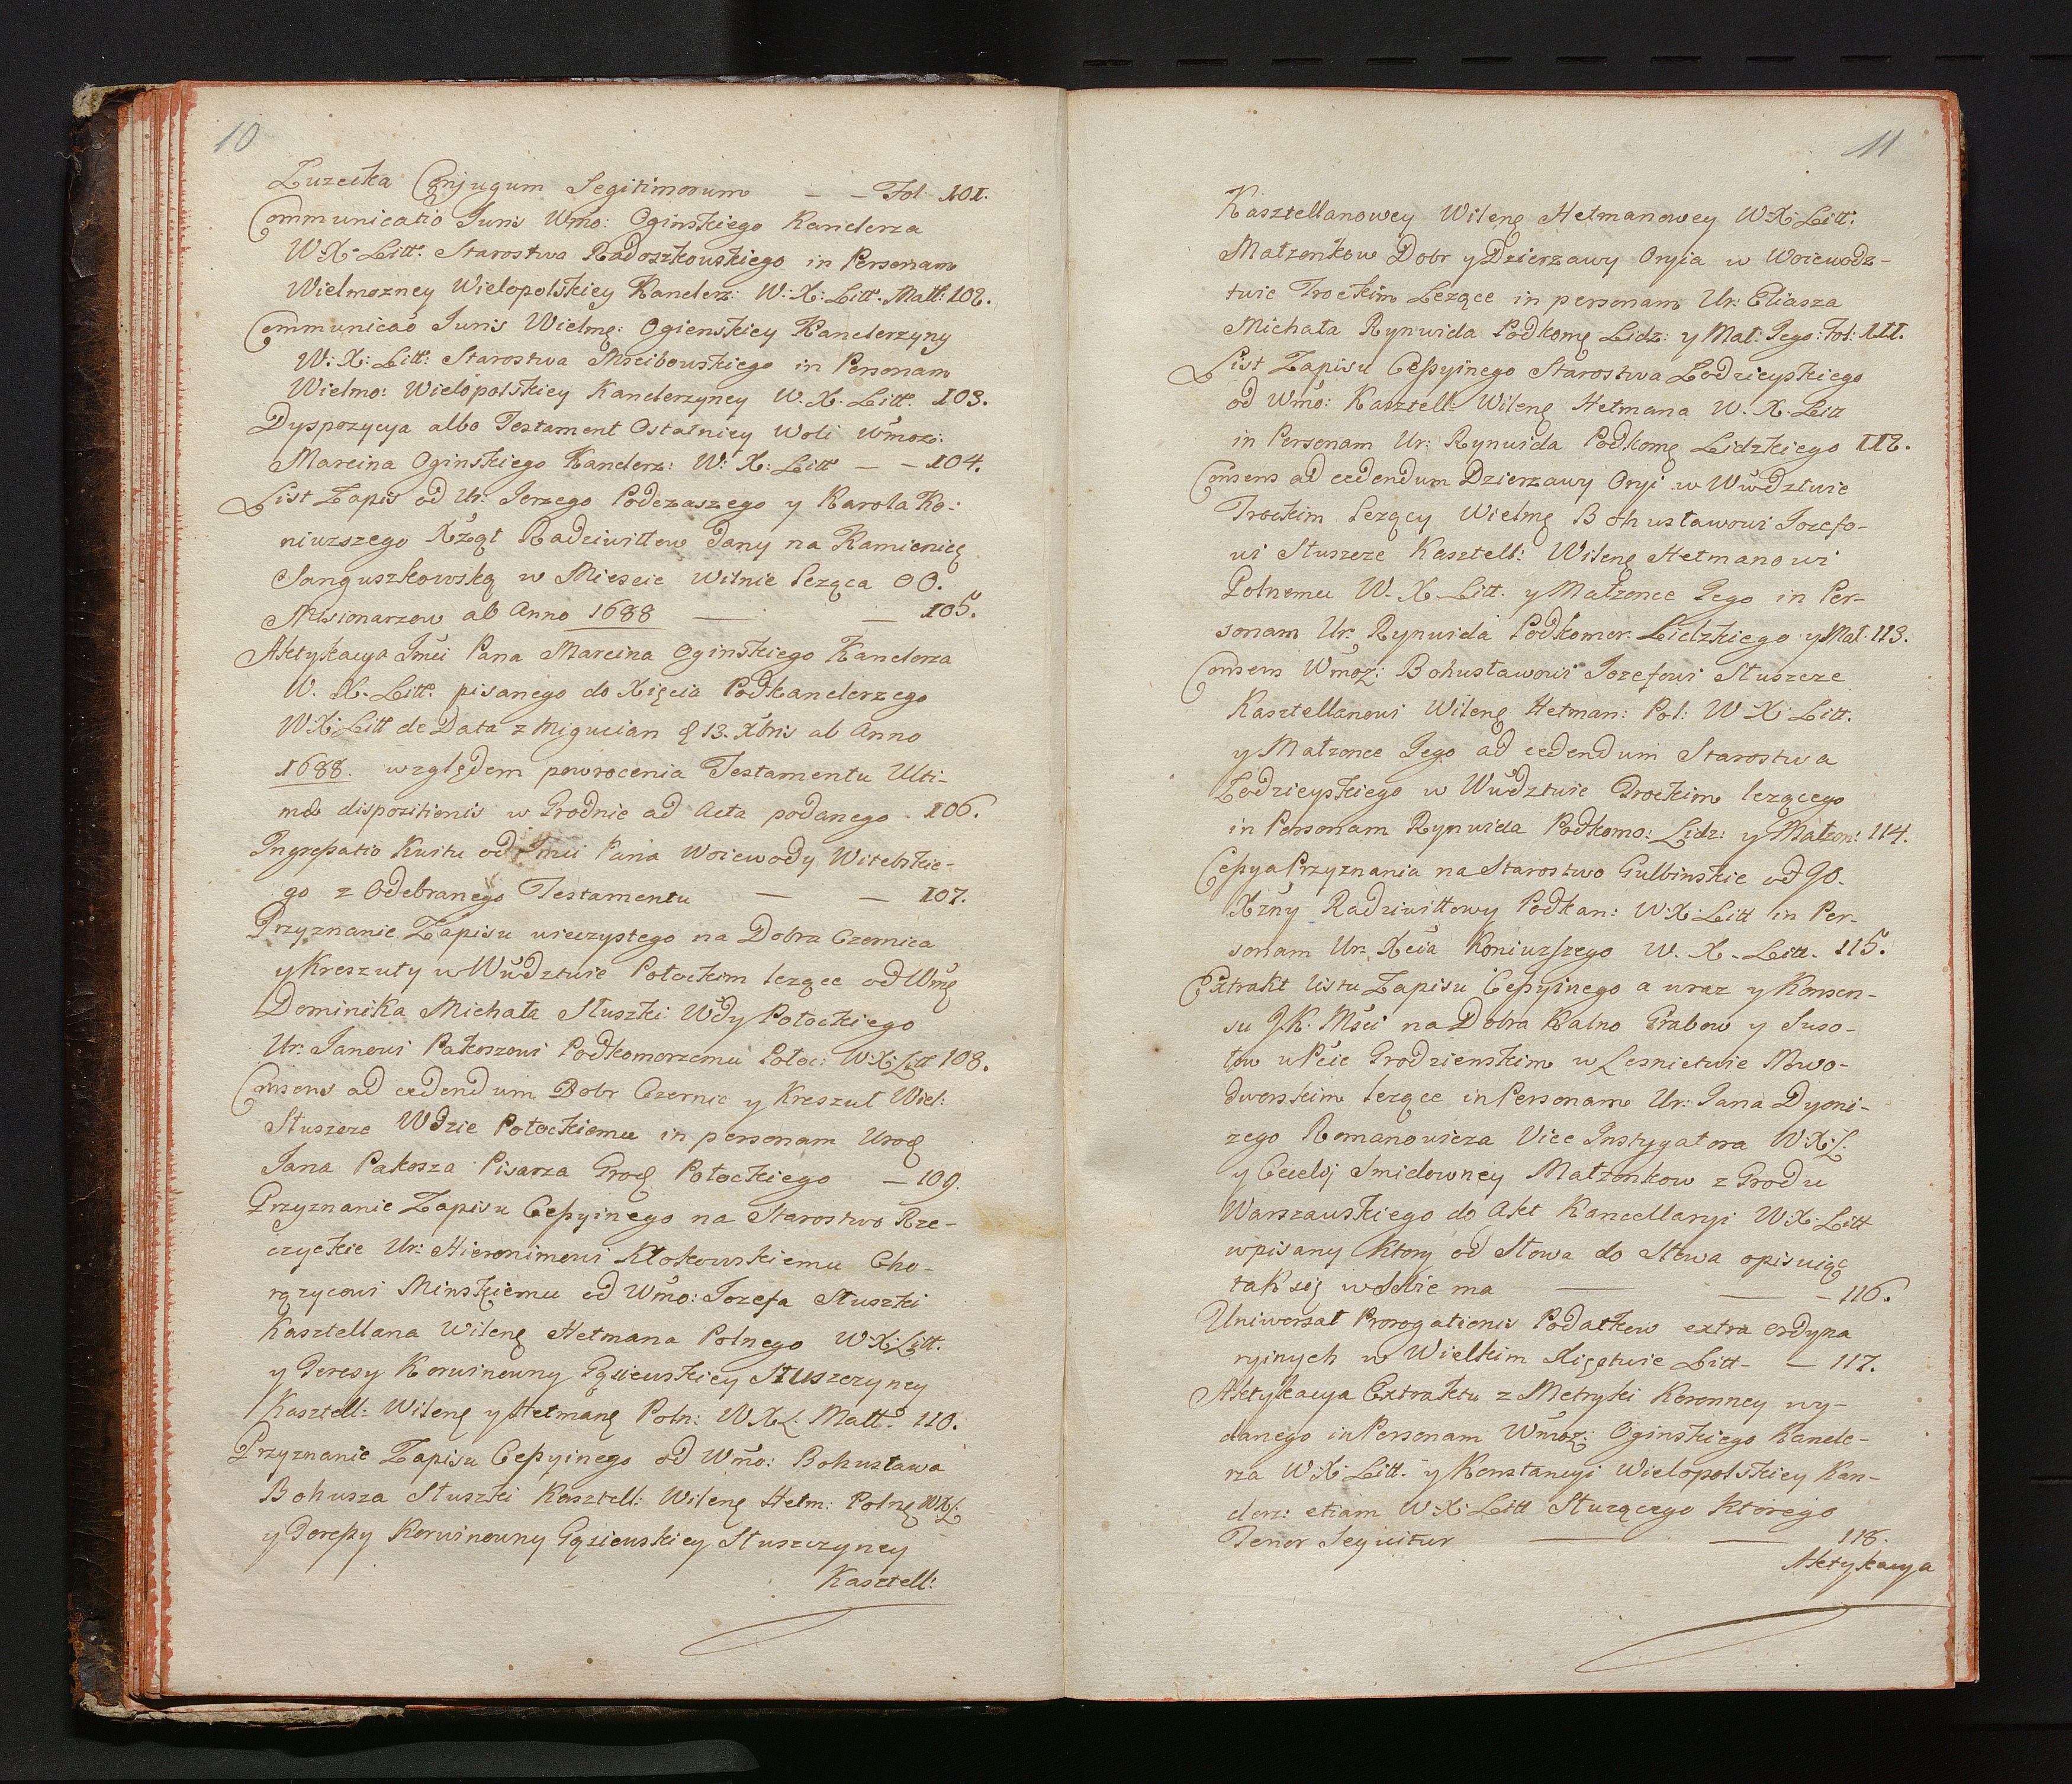 10
Luzecka Conjugum Legitimorum — — Fol: 101.
Communicatio Juris Wmo: Oginskiego Kanclerza
W. X. Litt: Starostwa Radoszkowskiego in Personam
Wielmozney Wielopolskiey Kanclerz: W: X: Litt. Matt: 102.
Communicao Juris Wielmę: Ogienskiey Kanclerzyny
W: X: Litt: Starostwa Mscibowskiego in Personam
Wielmo: Wielopolskiey Kanclerzyney W. X. Litt. 103.
Dyspozycya albo Testament Ostatniey Woli Wmoz:
Marcina Oginskiego Kanclerz: W: X: Litt — — 104.
List Zapis od Ur: Jerzego Podczaszego y Karola Ko-
niuszego Xżąt Radziwiłłow dany na Kamienicę
Sanguszkowską w Miescie Wilnie leząca OO.
Missionarzow ab Anno 1688 — — 105.
Aktykacya Jmci Pana Marcina Oginskiego Kanclerza
W. X. Litt. pisanego do Xięcia Podkanclerzego
W X: Litt de Data z Migucian d 13. Xbris ab Anno
1688. względem powrocenia Testamentu Ulti-
mæ dispozitionis w Grodnie ad Acta podanego . 106.
Ingreſsatio Kwitu od Jmci Pana Woiewody Witebskie-
go z Odebranego Testamentu — — 107.
Przyznanie Zapisu wieczystego na Dobra Czernica
y Kreszuty w Wwdztwie Połockim lezące od Wmę
Dominika Michała Słuszki Wdy Połockiego
Ur: Janowi Pakoszowi Podkomorzemu Połoc: W: X: Litt 108.
Consens ad cedendum Dobr Czernic y Kreszut Wiel:
Słuszcze Wdzie Połockiemu in personam Urod
Jana Pakosza Pisarza Grod Połockiego — 109.
Przyznanie Zapisu Ceſsyinego na Starostwo Rze-
czyckie Ur: Hieronimowi Kłokowskiemu Cho-
rązycowi Minskiemu od Wmo: Jozefa Słuszki
Kasztellana Wilenę Hetmana Polnego W: X: Litt.
y Teresy Korwinowny Gąsiewskiey Słuszczyney
Kasztell: Wilenę y Hetmanę Poln: W X L: Matt: 110.
Przyznanie Zapisu Ceſsyinego od Wmo: Bohusława
Bohusza Słuszki Kasztell: Wilenę Hetm: Polnę WXL:
y Tereſsy Korwinowny Gąsiewskiey Słuszczyney
Kasztell:
11
Kasztellanowey Wilenę Hetmanowey W: X: Litt:
Małzonkow Dobr y Dzierzawy Oryia w Woiewodz-
twie Trockim Lezące in personam Ur: Eliasza
Michała Rynwida Podkomę Lidz: y Mał: Jego: Fol: 111.
List Zapisu Ceſsyinego Starostwa Łodzieyskiego
od Wmo: Kasztell: Wilenę Hetmana W. X. Litt
in Personam Ur: Rynwida Podkomę Lidzkiego 112.
Consens ad cedendum Dzierzawy Oryi w Wwdztwie
Trockim Lezący Wielmę Bohusławowi Jozefo-
wi Słuszcze Kasztell: Wilenę Hetmanowi
Polnemu W. X. Litt. y Małzonce Jego in Per-
sonam Ur: Rynwida Podkomor. Lidzkiego y Mał. 113.
Consens Wmoz: Bohusławowi Jozefowi Słuszcze
Kasztellanowi Wilenę Hetman: Pol: W X: Litt.
y Małzonce Jego ad cedendum Starostwa
Łodzieyskiego w Wwdztwie Trockim lezącego
in Personam Rynwida Podkomo: Lidz: y Małzon: 114.
Ceſsya Przyznania na Starostwo Gulbinskie od JO.
Xżny Radziwiłłowy Podkan: W: X: Litt in Per-
sonam Ur: Xcia Koniuſzego W. X. Litt. 115.
Extrakt listu Zapisu Ceſsyinego a uraz y Konsen-
su J. K. Mści na Dobra Kalno Grabow y Suso-
low w Pcie Grodzienskim w Lesnictwie Nowo-
dworskim lezące in Personam Ur: Jana Dyoni-
zego Romanowicza Vice Instygatora W: X: L:
y Cecelij Smidowney Małzonkow z Grodu
Warszawskiego do Akt Kancellaryi W: X: Litt
wpisany ktory od Słowa do Słowa opisuiąc
tak się w sobie ma — — 116.
Uniwersał Prorogationis Podatkow extra ordyna
ryinych w Wielkim Xięstwie Litt — 117.
Aktykacya Extraktu z Metryki Koronney wy-
danego in Personam Wmoz: Oginskiego Kancle-
rza W: X: Litt. y Konstancyi Wielopolskiey Kan-
clerz: etiam W: X: Litt Słuzącego ktorego
Tenor Sequitur — — 118.
Aktykacya